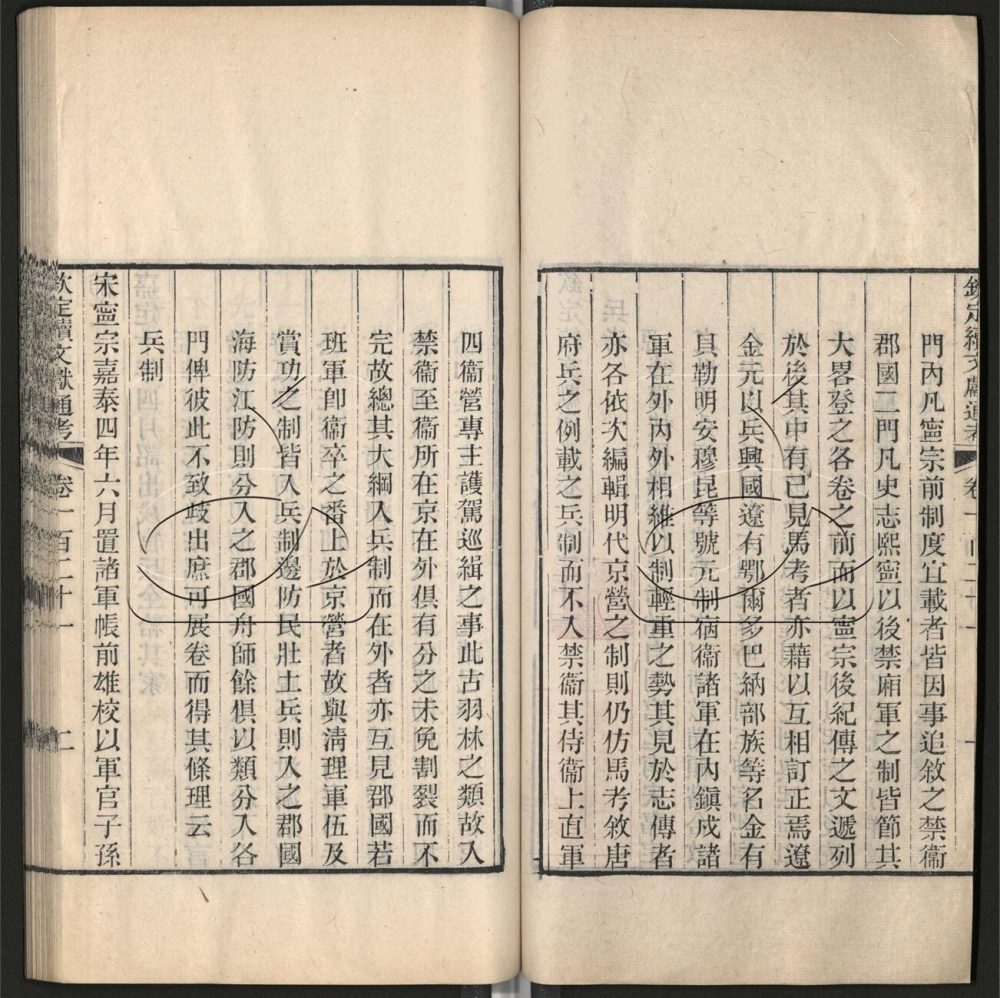 欽定續文獻通考 卷一百二十一
門內凡寧宗前制度宜載者皆因事追敘之禁衞
郡國二門凡史志熙寧以後禁廂軍之制皆節其
大畧登之各卷之前而以寧宗後紀傳之文遞列
於後其中有已見馬考者亦藉以互相訂正焉遼
金元以兵興國遼有鄂爾多巴納部族等名金有
具勒明安穆昆等號元制宿衞諸軍在內鎮戍諸
軍在外內外相維以制輕重之勢其見於志傳者
亦各依次編輯明代京營之制則仍仿馬考敘唐
府兵之例載之兵制而不入禁衞其侍衞上直軍
四衞營專主護駕巡緝之事此古羽林之類故入
禁衞至衞所在京在外俱有分之未免割裂而不
完故總其大綱入兵制而在外者亦互見郡國若
班軍卽衞卒之番上於京營者故與淸理軍伍及
賞功之制皆入兵制邊防民壯土兵則入之郡國
海防江防則分入之郡國舟師餘俱以類分入各
門俾彼此不致歧出庶可展卷而得其條理云
兵制
宋寧宗嘉泰四年六月置諸軍帳前雄校以軍官子孫
欽定續文獻通考 卷一百二十一 二